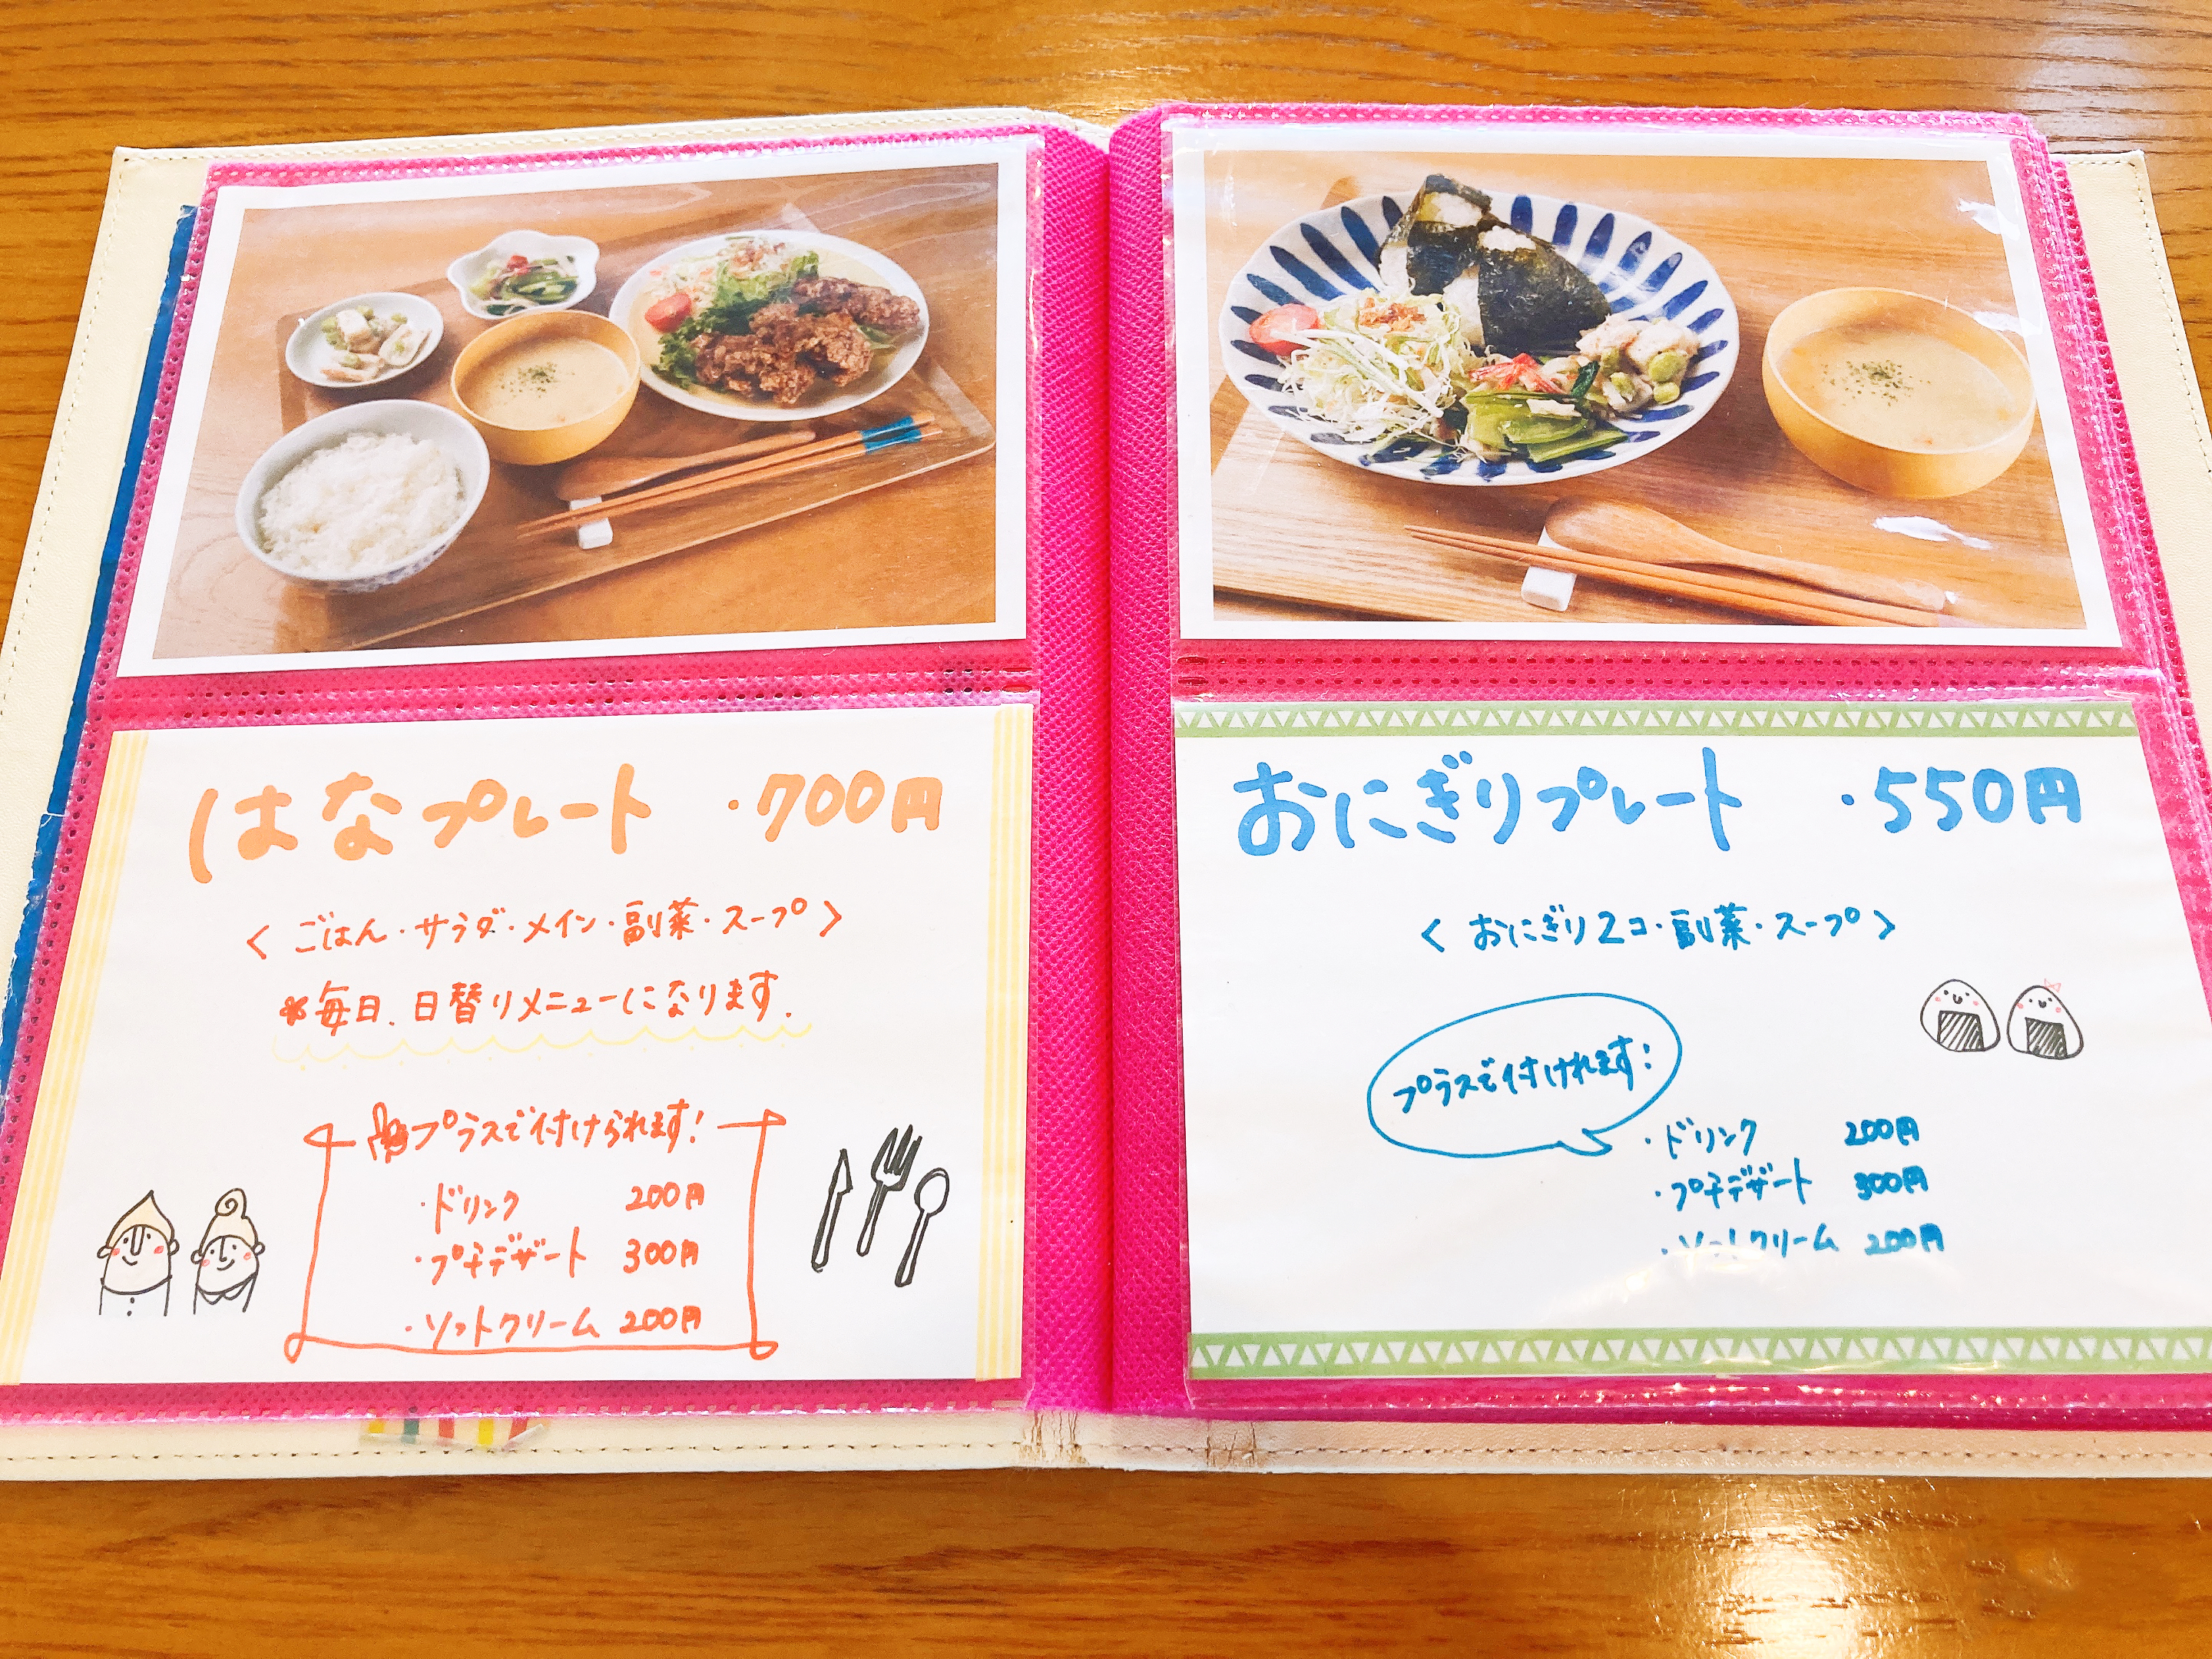 はなプレート ・700円
< ごはん・サラダ・メイン・副菜・スープ >
*毎日、日替りメニューになります.
プラスで付けられます!
・ドリンク 200円
・プチデザート 300円
・ソフトクリーム 200円
おにぎりプレート ・550円
< おにぎり2コ・副菜・スープ >
プラスで付けれます!
・ドリンク 200円
・プチデザート 300円
・ソフトクリーム 200円